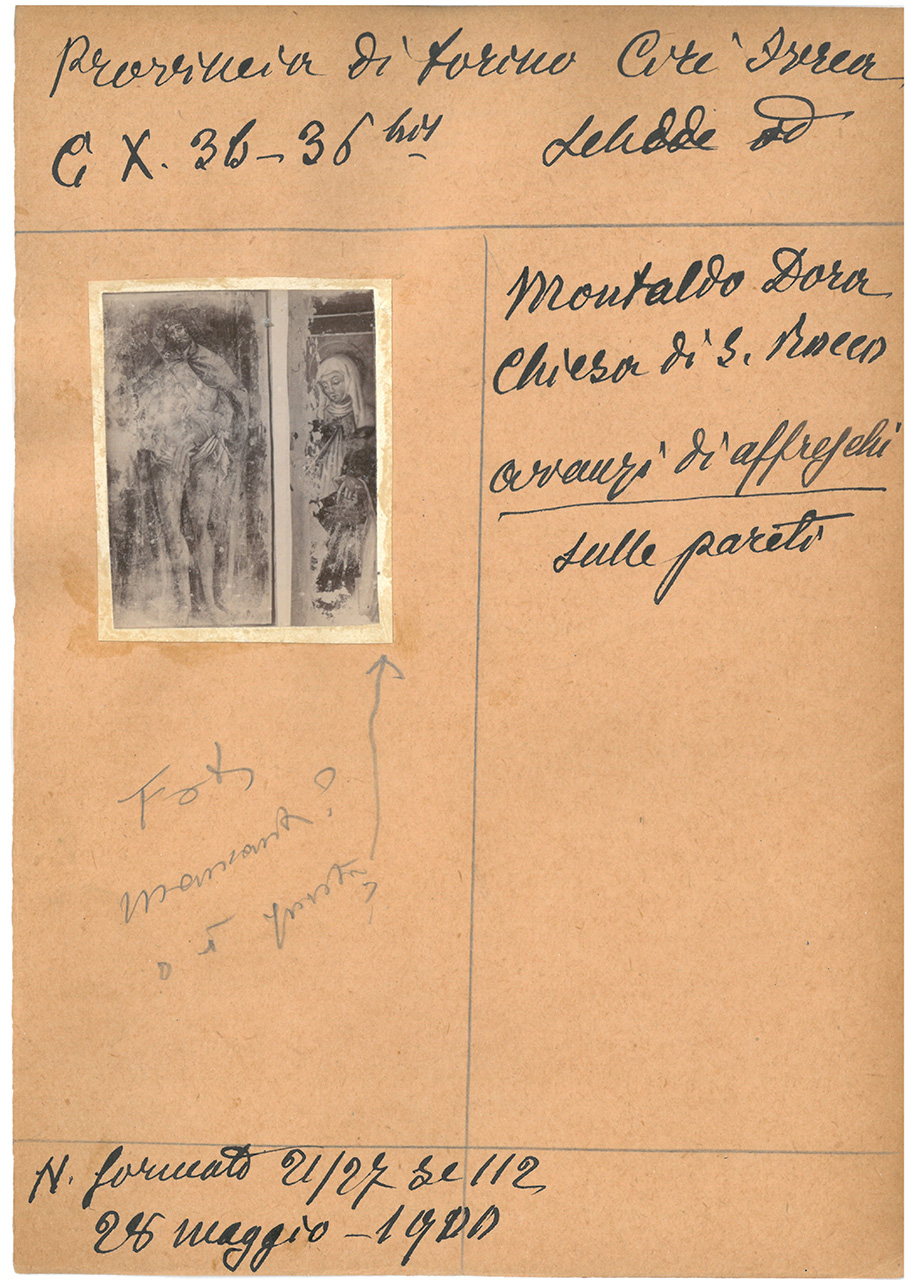 Provincia di Torino Cirè Ivrea
C X. 36 - 36 bis
Montaldo Dora
Chiesa di S. Rocco
avanzi di affreschi
sulle pareti
Foto
N. formato 21/27 se 112
28 maggio - 1900